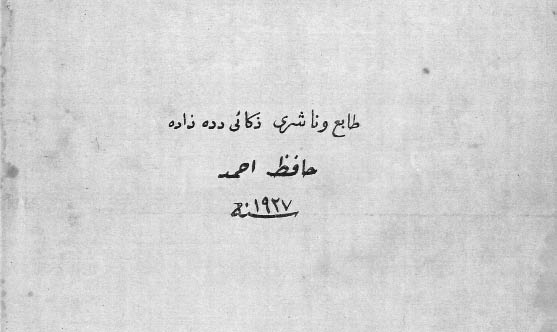 طابع وناشرى ذكائى دده زاده
حافظ احمد
سنه ١٩٢٧